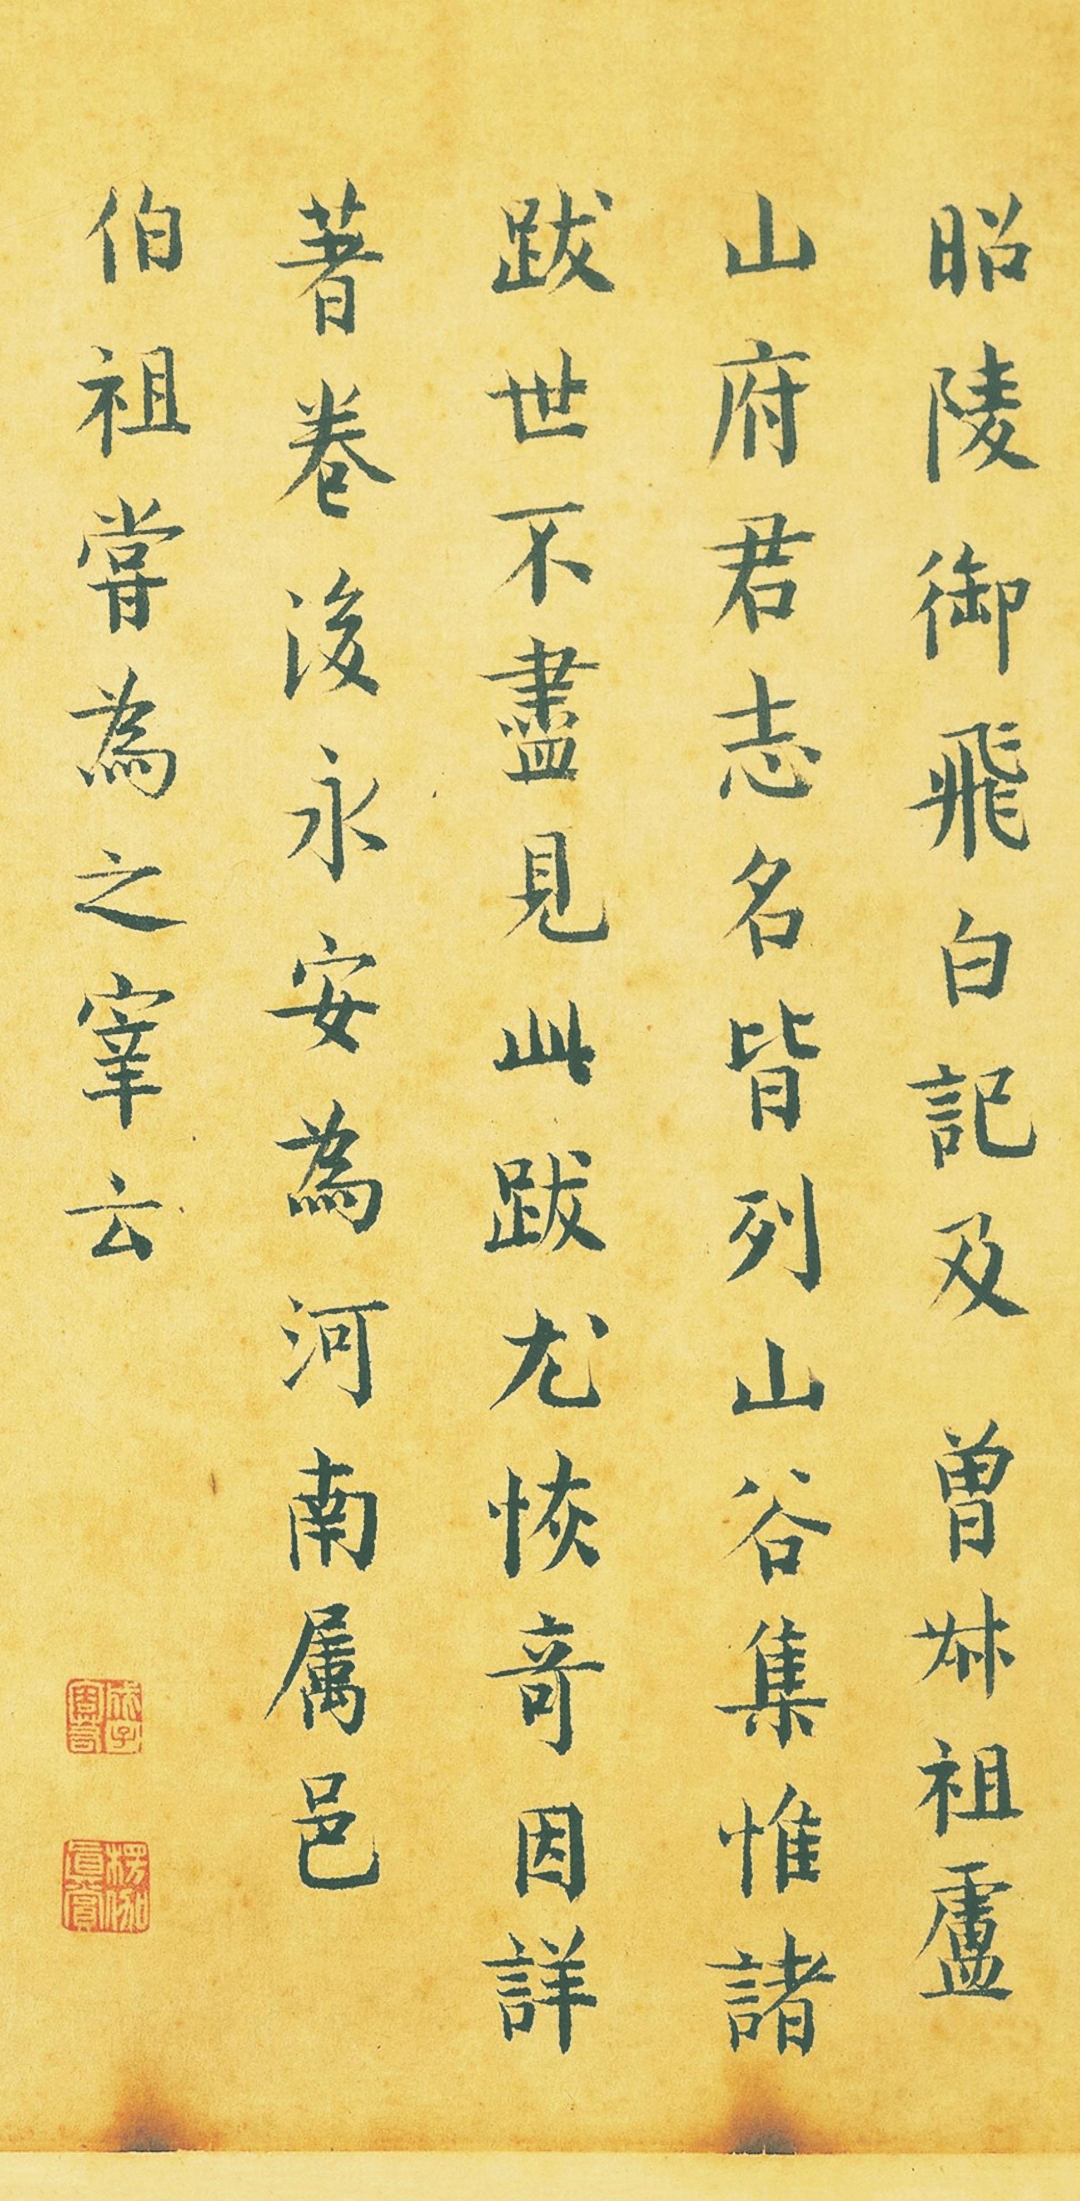 昭陵御飛白記及 曾叔祖盧
山府君志名皆列山谷集惟諸
跋世不盡見此跋尤恢奇因詳
著卷後永安為河南属邑
伯祖嘗為之宰云
楞伽
真賞